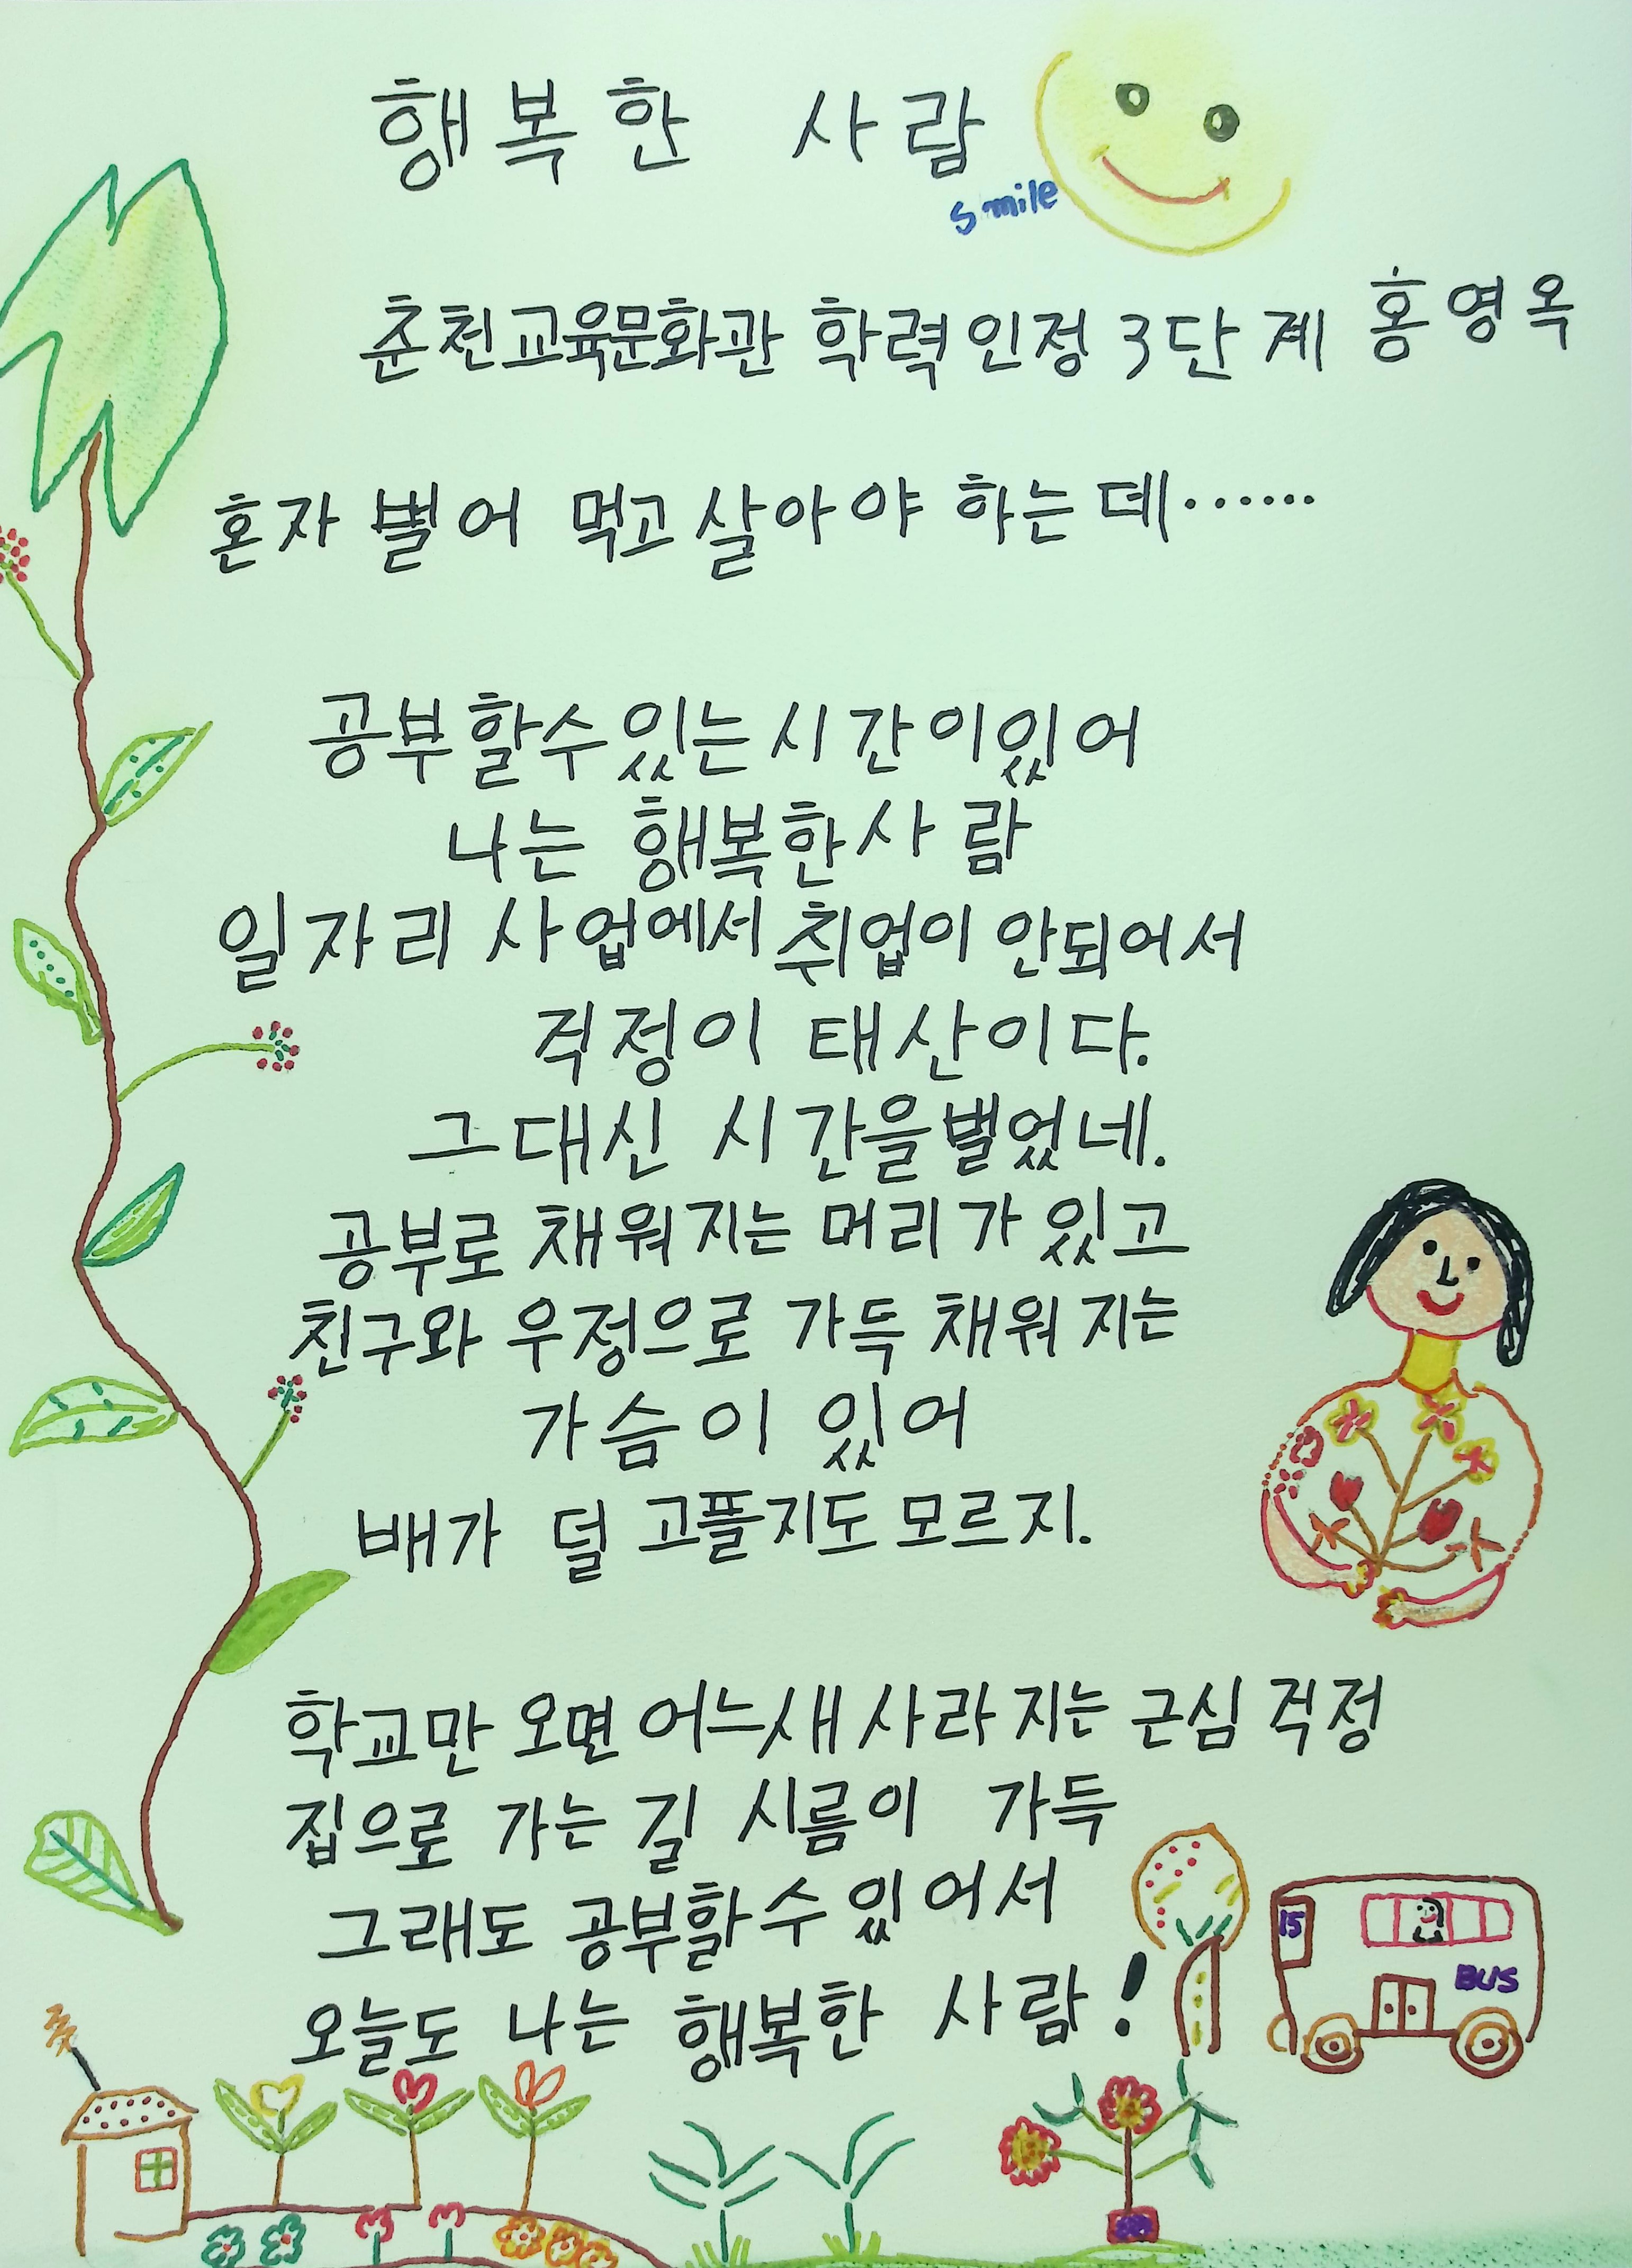 행복한 사람
smile
춘천교육문화관 학력인정 3단계 홍영옥
혼자 벌어 먹고 살아야 하는데······
공부할수있는시간이있어
나는 행복한사람
일자리 사업에서 취업이 안되어서
걱정이 태산이다.
그대신 시간을벌었네.
공부로 채워지는 머리가 있고
친구와 우정으로 가득 채워지는
가슴이 있어
배가 덜 고플지도모르지.
학교만 오면 어느새 사라지는 근심 걱정
집으로 가는 길 시름이 가득
그래도 공부할수있어서
오늘도 나는 행복한 사람!
15
BUS